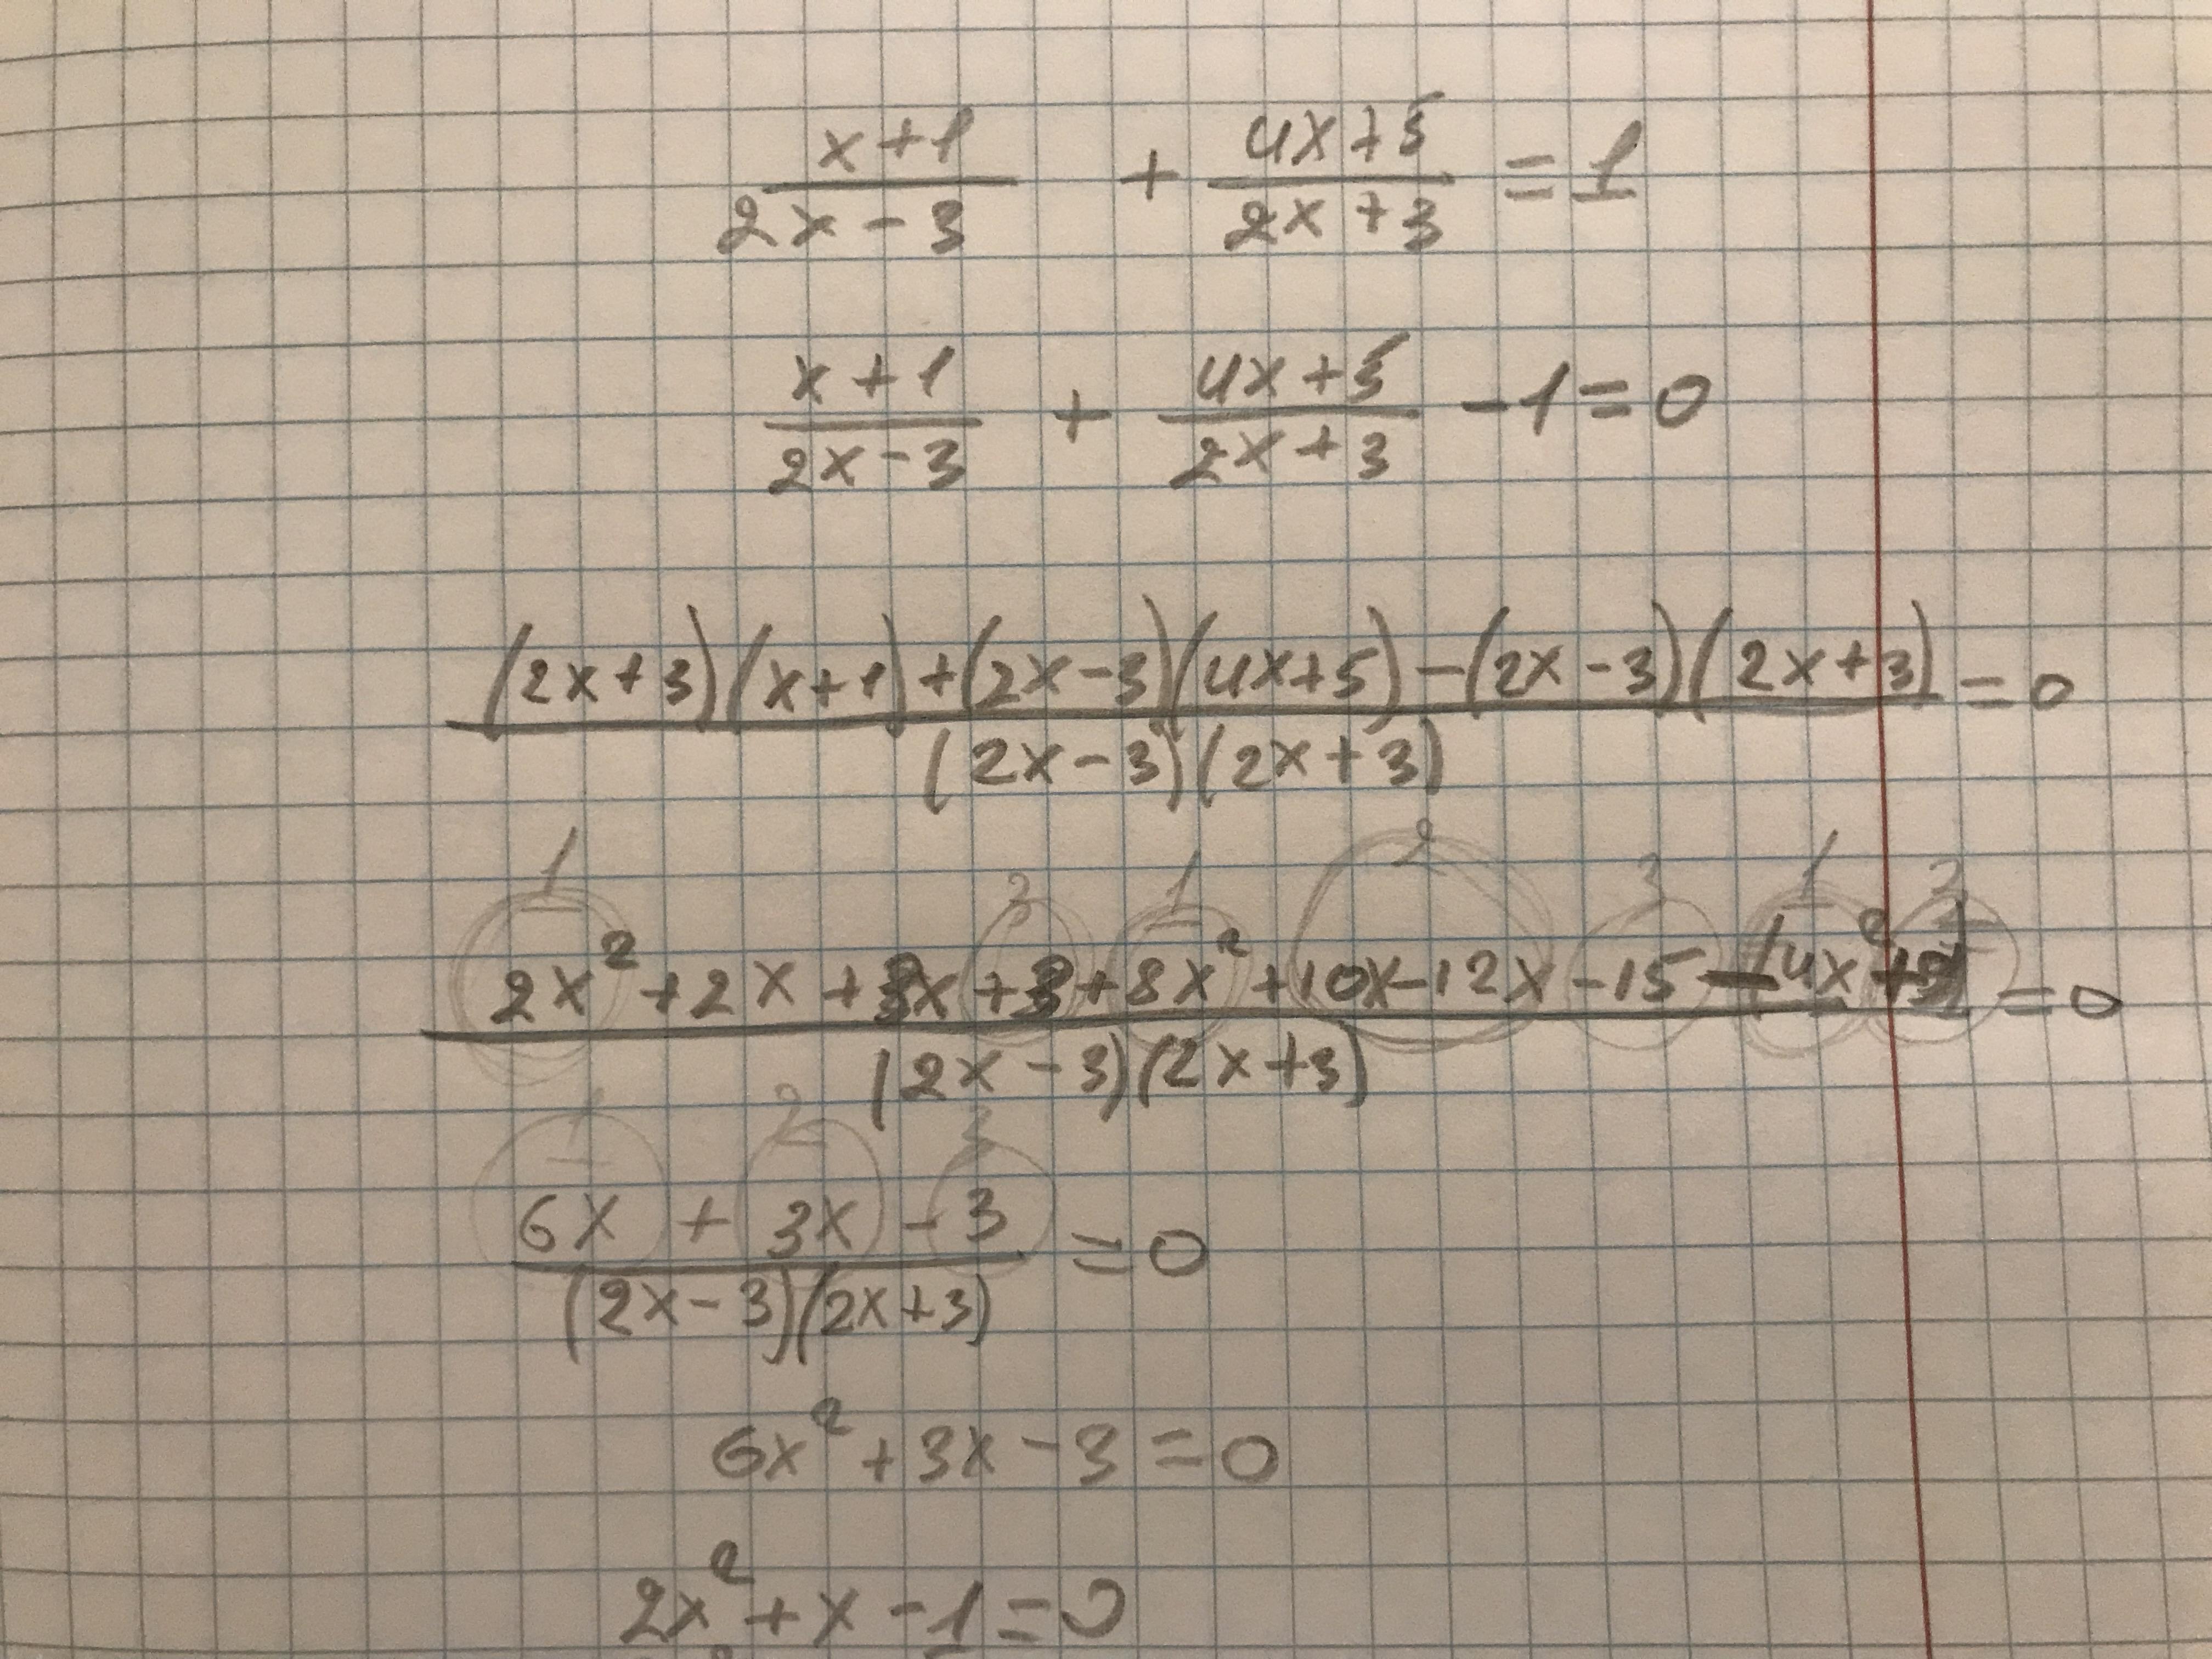 (x+1)/(2x-3) + (4x+5)/(2x+3) = 1
(x+1)/(2x-3) + (4x+5)/(2x+3) - 1 = 0
((2x+3)(x+1)+(2x-3)(4x+5)-(2x-3)(2x+3))/((2x-3)(2x+3)) = 0
1 3 1 2 3 1 3
(2x²+2x+3x+3+8x²+10x-12x-15-4x²+9)/((2x-3)(2x+3)) = 0
1 2 3
(6x + 3x - 3)/((2x-3)(2x+3)) = 0
6x²+3x-3=0
2x²+x-1=0